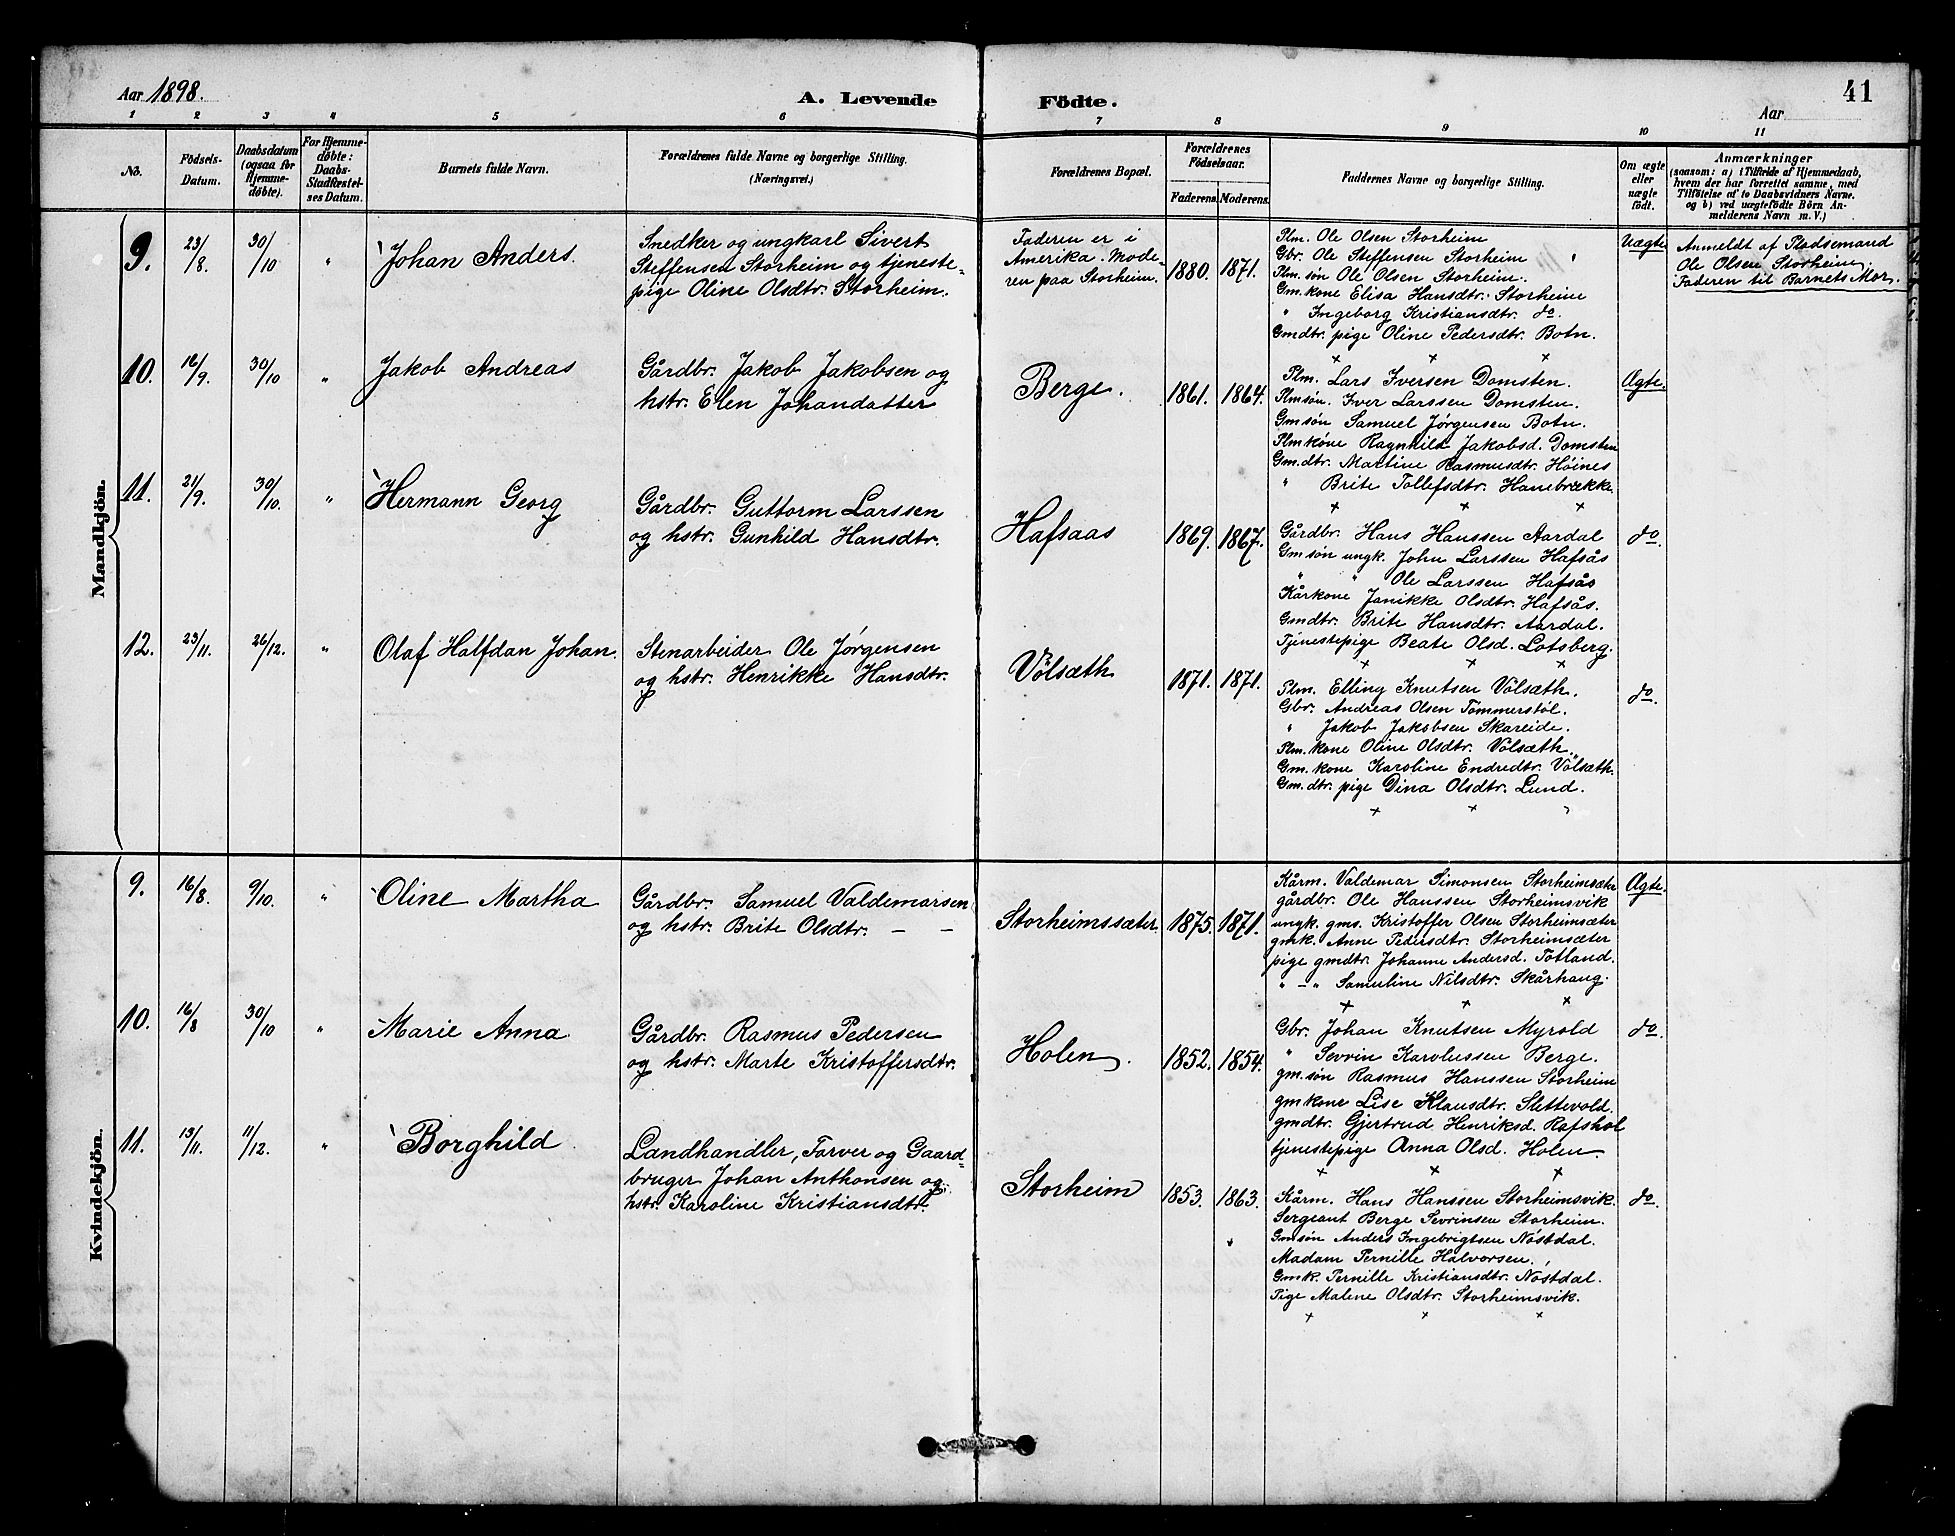 Aar 1898.
A. Levende Födte.
Aar
41
1 2 3 4 5 6 7 8 9 10 11
No.
Födsels-
Datum.
Daabsdatum
(ogsaa for
Hjemme-
döbte).
For Hjemme-
döbte:
Daabs-
Stadfæstel-
ses Datum.
Barnets fulde Navn.
Forældrenes fulde Navne og borgerlige Stilling.
(Næringsvei.)
Forældrenes Bopæl.
Forældrenes
Födselsaar.
Faderens. Moderens.
Faddernes Navne og borgerlige Stilling.
Om ægte
eller
uægte
födt.
Anmærkninger
(saasom: a) i Tilfælde af Hjemmedaab,
hvem der har forrettet samme, med
Tilföielse af to Daabsvidners Navne.
og b) ved uægtefödte Börn An-
melderens Navn m. V.)
Mandkjön.
9. 23/8. 30/10 " Johan Anders.
Snedker og ungkarl Sivert
Steffensen Storheim og tjeneste-
pige Oline Olsdtr. Storheim.
Faderen er i
Amerika. Mode-
ren paa Storheim.
1880. 1871.
Plm. Ole Olsen Storheim
Gbr. Ole Steffensen Storheim "
Plm. søn Ole Olsen Storheim.
Gm. kone Elisa Hansdtr. Storheim
" Ingeborg Kristiansdtr. do.
Gmdtr. pige Oline Pedersdtr. Botn.
Uægte
Anmeldt af Pladsemand
Ole Olsen Storheim.
Faderen til Barnets Mor.
10. 16/9. 30/10 " Jakob Andreas
Gårdbr. Jakob Jakobsen og
hstr. Elen Johandatter
Berge.
1861. 1864.
Plm. Lars Iversen Domsten.
Plmsøn. Iver Larssen Domsten.
Gmsøn Samuel Jørgensen Botn.
Plmkone Ragnhild Jakobsd. Domsten
Gm.dtr. Martine Rasmusdtr. Høines
" Brite Tollefsdtr. Hanebrække.
Ægte.
11. 21/9. 30/10. " Hermann Georg
Gårdbr. Guttorm Larssen
og hstr. Gunhild Hansdtr.
Hafsaas
1869. 1867.
Gårdbr. Hans Hanssen Aardal
Gmsøn ungk. John Larssen Hafsås
" " Ole Larssen Hafsås
Kårkone Janikke Olsdtr. Hafsås.
Gmdtr. Brite Hansdtr. Aardal.
Tjenestepige Beate Olsd. Lotsberg.
do.
12. 23/11. 26/12. " Olaf Halfdan Johan.
Stenarbeider Ole Jørgensen
og hstr. Henrikke Hansdtr.
Vølsæth
1871. 1871.
Plm. Elling Knutsen Vølsæth.
Gbr. Andreas Olsen Tømmerstøl.
" Jakob Jakobsen Skareide.
Plm. kone Oline Olsdtr. Vølsæth.
Gm. kone Karoline Endredtr. Vølsæth.
Gm.dtr. pige Dina Olsdtr. Lund.
do.
Kvindekjön.
9. 16/8. 9/10. " Oline Martha
Gårdbr. Samuel Valdemarsen
og hstr. Brite Olsdtr. – –
Storheimssæter.
1875. 1871.
Kårm. Valdemar Simonsen Storheimsæter
gårdbr. Ole Hanssen Storheimsvik
ungk. gms. Kristoffer Olsen Storheimsæter
gmk. Anne Pedersdtr. Storheimsæter
pige gmdtr. Johanne Andersd. Totland.
" – " Samuline Nilsdtr. Skårhaug.
Ægte.
10. 16/8 30/10 " Marie Anna
Gårdbr. Rasmus Pedersen
og hstr. Marte Kristoffersdtr.
Holen.
1852. 1854.
Gbr. Johan Knutsen Myrold
" Sevrin Karolussen Berge.
gm.søn Rasmus Hanssen Storheim
gmkone Lise Klausdtr. Slettevold.
gmdtr. Gjertrud Henriksd. Rafshol
tjenestepige Anna Olsd. Holen.
do.
11. 13/11. 11/12. " Borghild
Landhandler, Farver og Gaard-
bruger Johan Anthonsen og
hstr. Karoline Kristiansdtr.
Storheim
1853. 1863.
Kårm. Hans Hanssen Storheimsvik.
Sergeant Berge Sevrinsen Storheim.
Gmsøn Anders Ingebrigtsen Nøstdal.
Madam Pernille Halvorsen.
Gmk. Pernille Kristiansdtr. Nøstdal.
Pige Malene Olsdtr. Storheimsvik.
do.